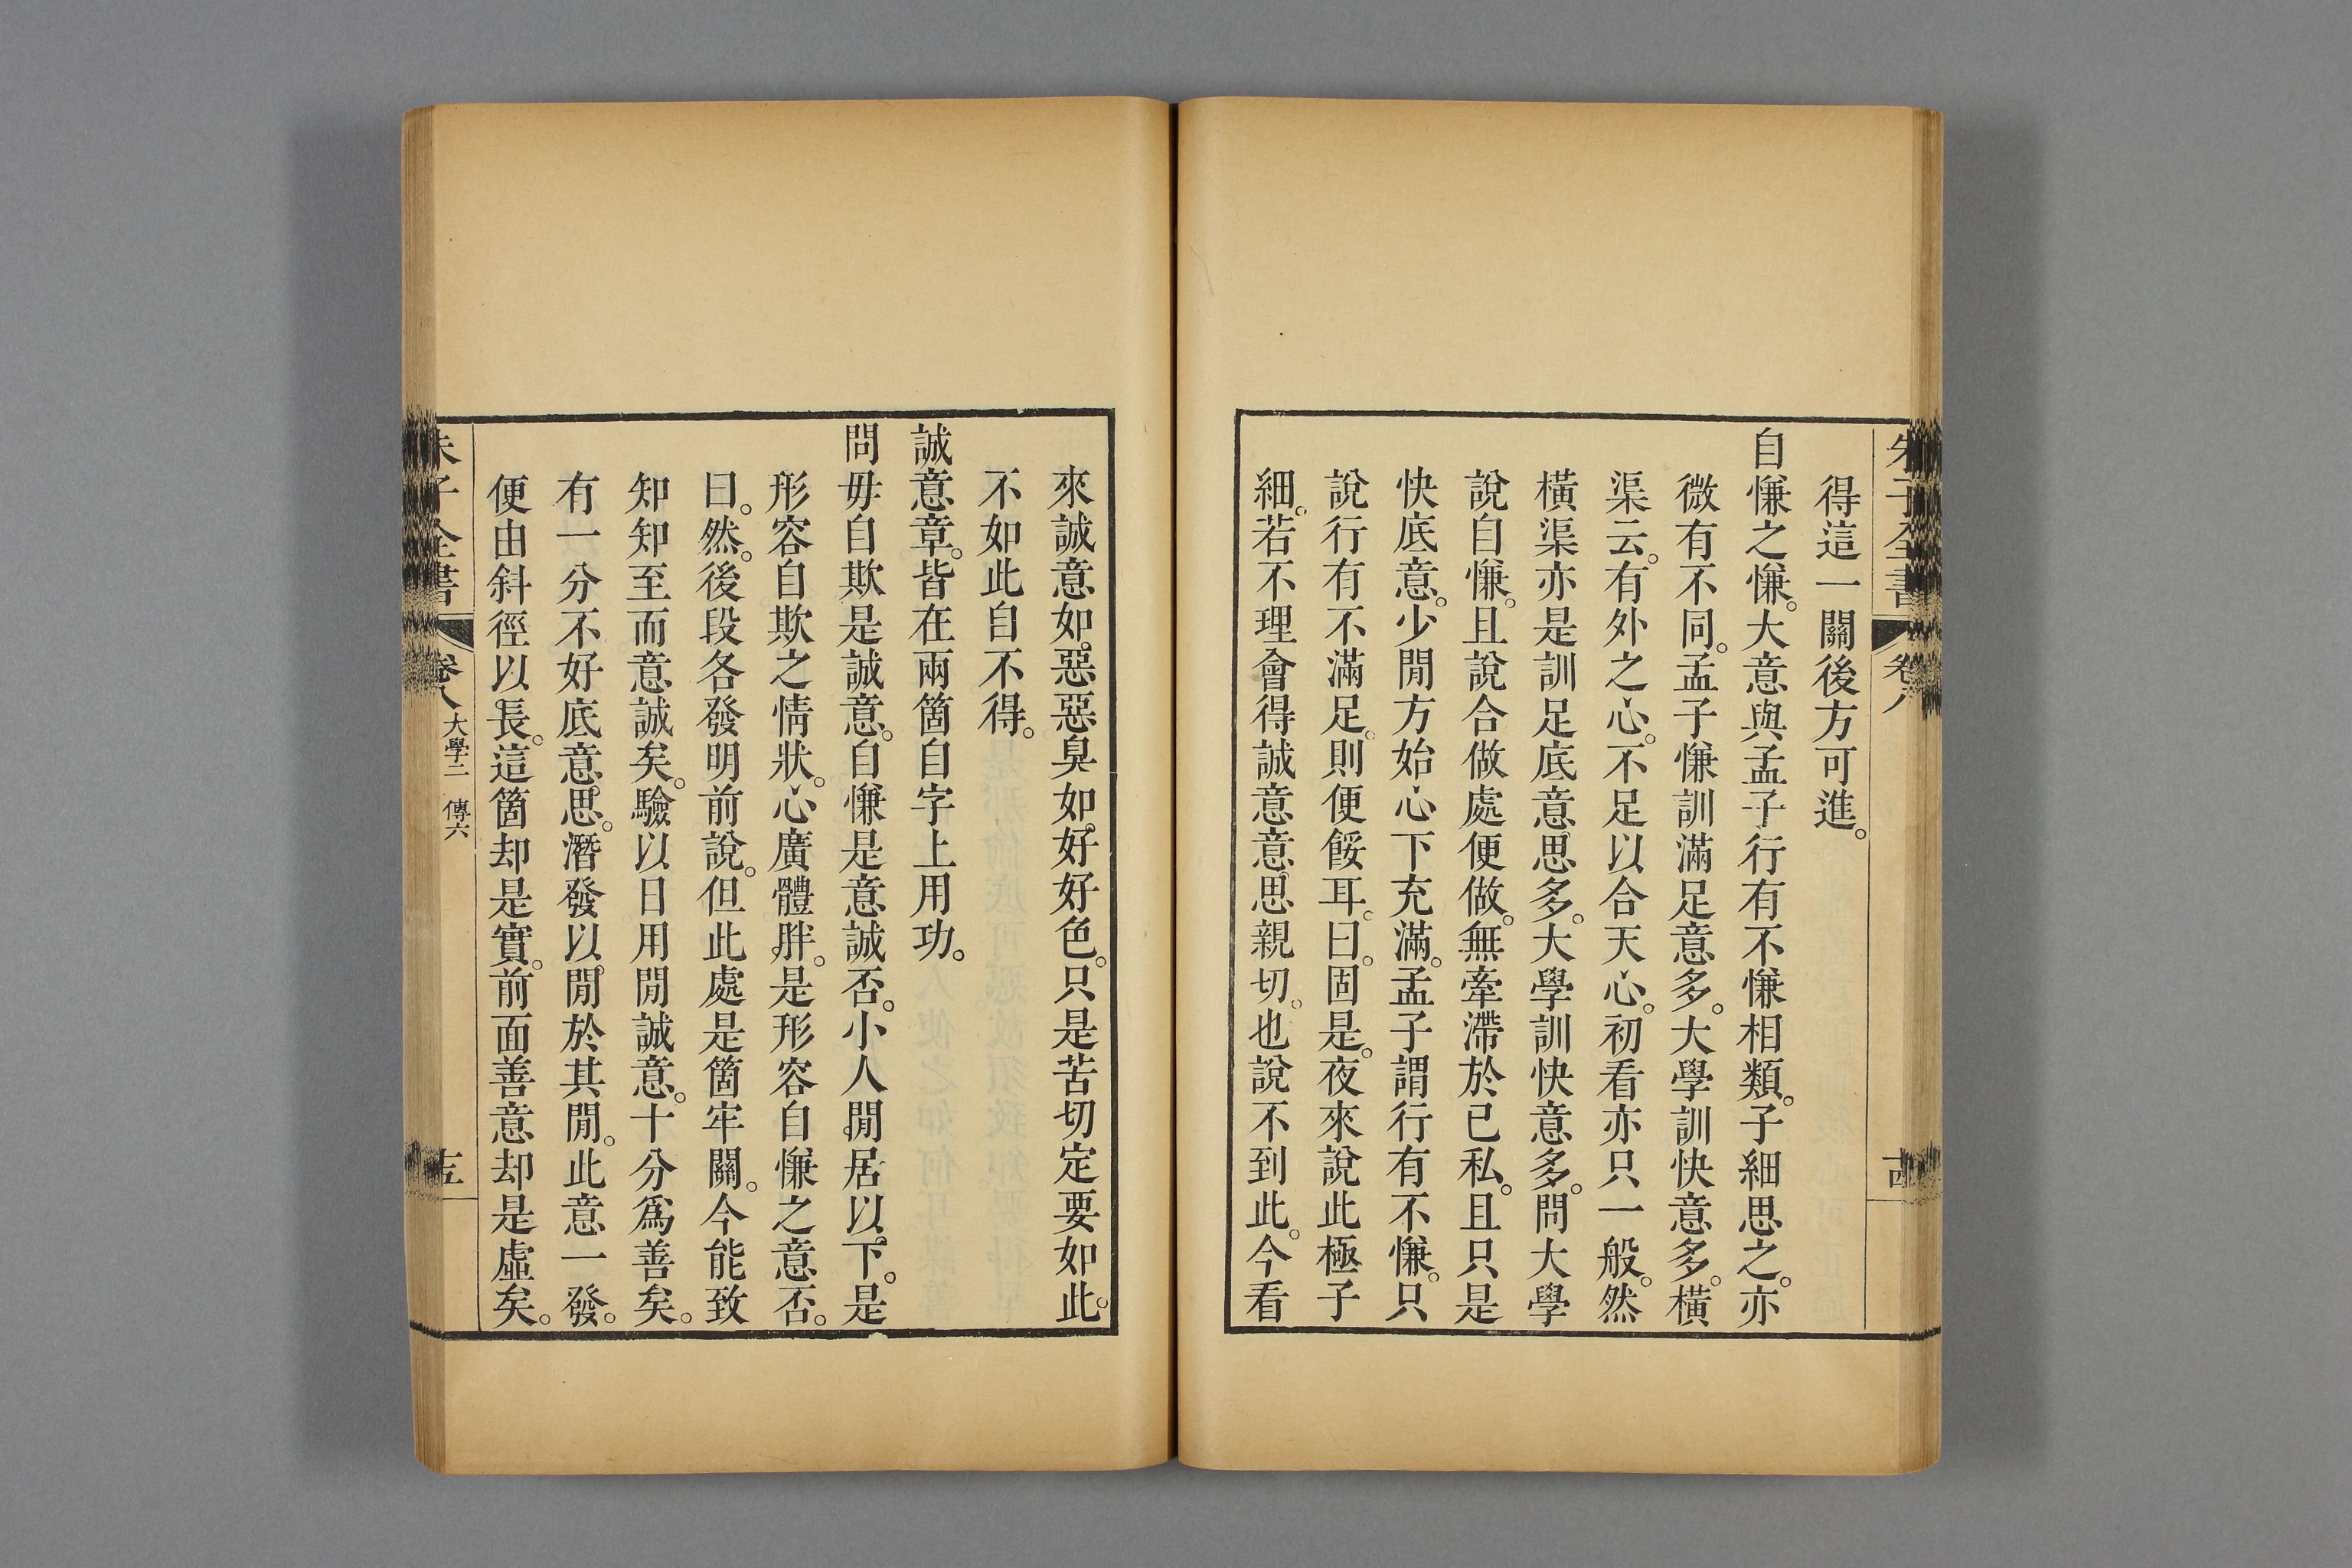 朱子全書 卷八
得這一關後方可進。
自慊之慊。大意與孟子行有不慊相類。子細思之。亦
微有不同。孟子慊訓滿足意多。大學訓快意多。橫
渠云。有外之心。不足以合天心。初看亦只一般。然
橫渠亦是訓足底意思多。大學訓快意多。問大學
說自慊。且說合做處便做。無牽滯於己私。且只是
快底意。少閒方始心下充滿。孟子謂行有不慊。只
說行有不滿足。則便餒耳。曰。固是。夜來說此極子
細。若不理會得誠意意思親切。也說不到此。今看
來誠意如惡惡臭如好好色。只是苦切定要如此。
不如此自不得。
誠意章。皆在兩箇自字上用功。
問毋自欺是誠意。自慊是意誠否。小人閒居以下。是
形容自欺之情狀。心廣體胖。是形容自慊之意否。
曰。然。後段各發明前說。但此處是箇牢關。今能致
知知至而意誠矣。驗以日用閒誠意。十分爲善矣。
有一分不好底意思。潛發以閒於其閒。此意一發。
便由斜徑以長。這箇却是實。前面善意却是虛矣。
朱子全書 卷八 大學二 傳六 十五